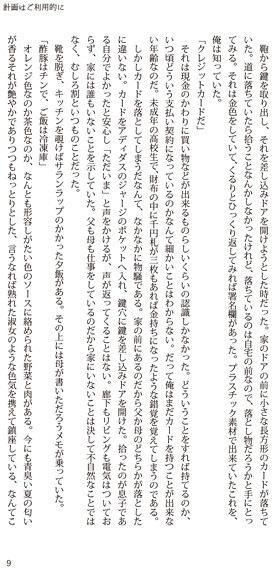 計画はご利用的に
鞄から鍵を取り出し、それを差し込みドアを開けようとした時だった。家のドアの前に小さな長方形のカードが落ちて
いた。道に落ちていたら拾うことなんかしなかったけれど、落ちているのは自宅の前なので、落とし物だろうかと手にとっ
てみる。それは金色をしていて、くるりとひっくり返してみれば署名欄があった。プラスチック素材で出来ていたこれを、
俺は知っていた。
「クレジットカードだ」
それは現金のかわりに買い物などが出来るものらしいくらいの認識しかなかった。どういうことをすれば持てるのか、
いつ頃どういう支払い契約になっているのかなんて細かいことはわからない。だって俺はまだカードを持つことが出来な
い年齢なのだ。未成年の高校生で、財布の中に千円札が三枚もあれば金持ちになったような錯覚を覚えてしまうのである。
しかしカードを落としてしまうだなんて、なかなかに物騒である。家の前にあるのだから父か母のどちらかが落とした
に違いない。カードをアディダスのジャージのポケットへ入れ、鍵穴に鍵を差し込みドアを開けた。拾ったのが息子であ
る自分でよかったと安心し「ただいま」と声をかけるが、声が返ってくることはない。廊下もリビングも電気はついてお
らず、家には誰もいないことを示していた。父も母も仕事をしているのだから家にいないことは決して不自然なことでは
なく、むしろ割といつものことだった。
靴を脱ぎ、キッチンを覗けばサランラップのかかった夕飯がある。その上には母が書いただろうメモが乗っていた。
「酢豚はチンで、ご飯は冷凍庫」
オレンジ色なのか茶色なのか、なんとも形容しがたい色のソースに絡められた野菜と肉がある。今にも青臭い夏の匂い
が香るそれが艶やかでありつつもねっとりとした、言うなれば熟れた淑女のような色気を携えて鎮座している、なんてこ
9